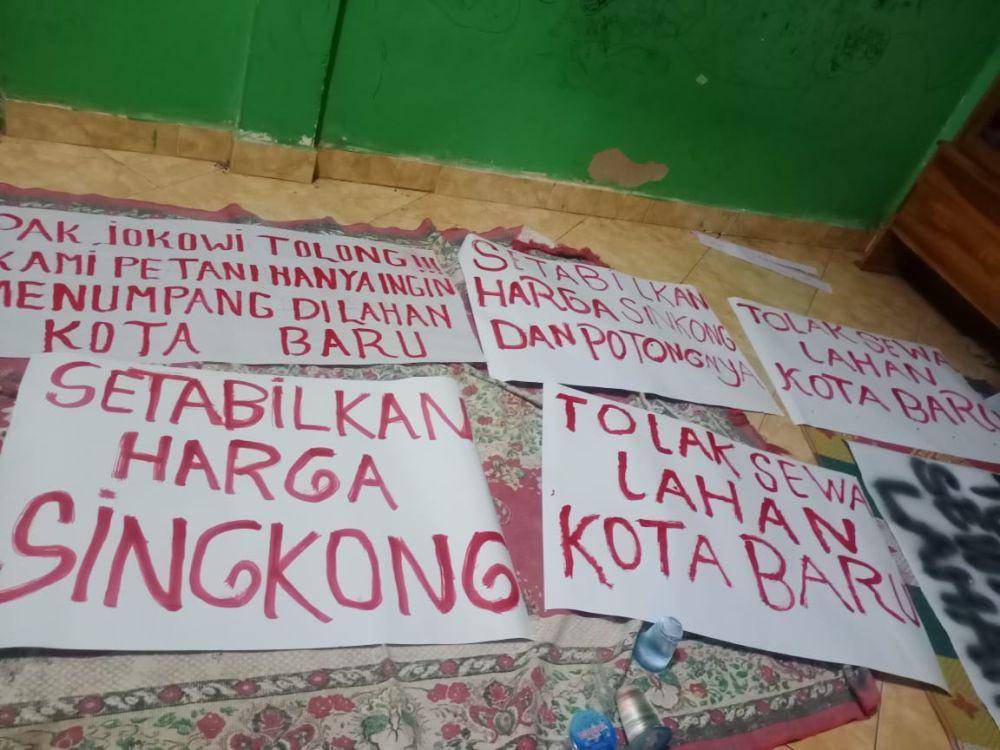 PAK JOKOWI TOLONG!!!
KAMI PETANI HANYA INGIN
MENUMPANG DI LAHAN
KOTA BARU
SETABILKAN
HARGA SINKONG
DAN POTONGNYA
TOLAK SEWA
LAHAN
KOTA BARU
SETABILKAN
HARGA
SINGKONG
TOLAK SEWA
LAHAN
KOTA BARU